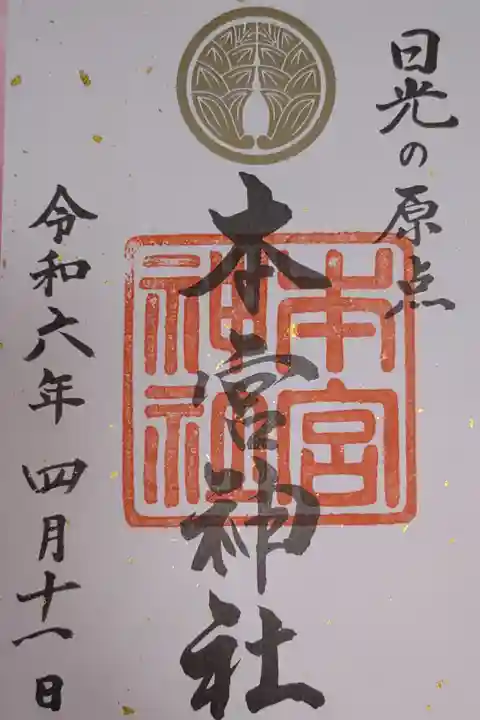 日光の原点
本宮神社
本宮神社
令和六年四月十一日